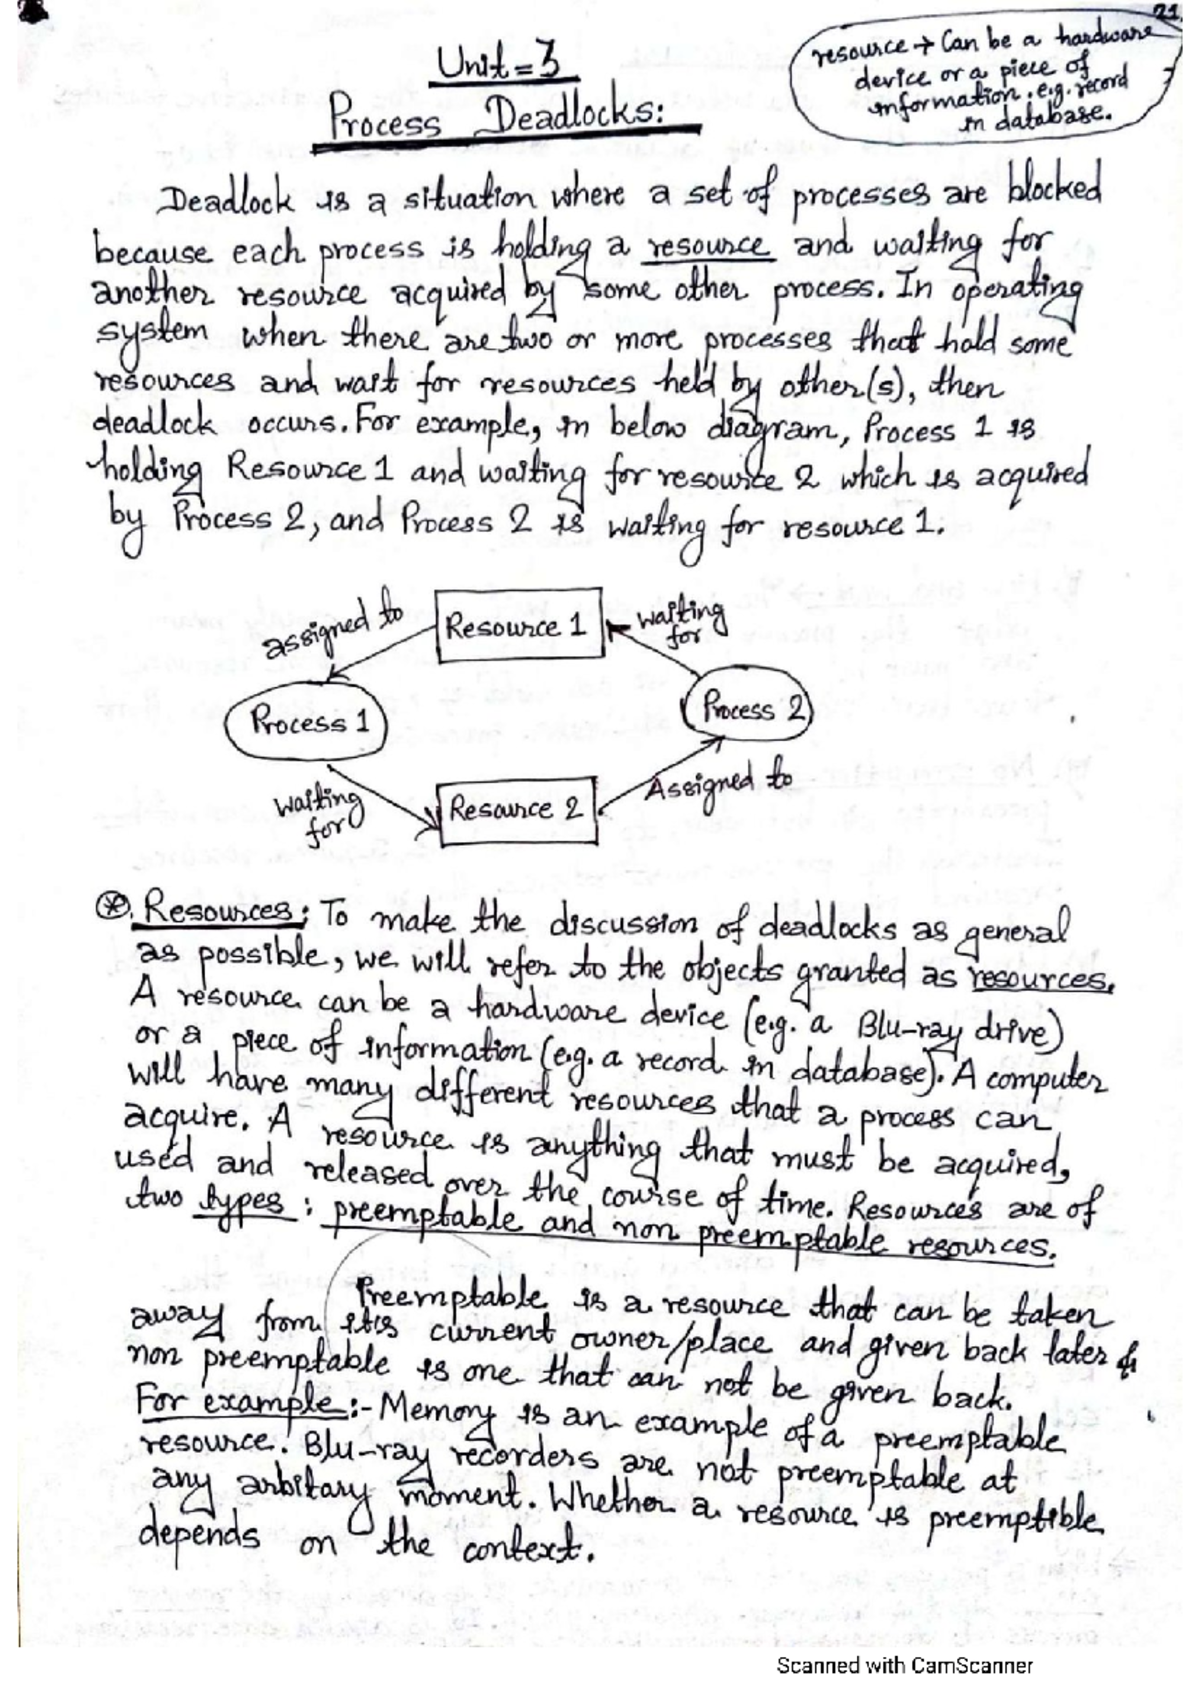 21
resource → Can be a hardware
device or a piece of
information. e.g. record
in database.
Unit = 3
Process Deadlocks:
Deadlock is a situation where a set of processes are blocked
because each process is holding a resource and waiting for
another resource acquired by some other process. In operating
system when there are two or more processes that hold some
resources and wait for resources held by other(s), then
deadlock occurs. For example, in below diagram, Process 1 is
holding Resource 1 and waiting for resource 2 which is acquired
by Process 2, and Process 2 is waiting for resource 1.
assigned to
Resource 1
waiting
for
Process 1
Process 2
waiting
for
Resource 2
Assigned to
⊛. Resources: To make the discussion of deadlocks as general
as possible, we will refer to the objects granted as resources.
A resource can be a hardware device (e.g. a Blu-ray drive)
or a piece of information (e.g. a record in database). A computer
will have many different resources that a process can
acquire. A resource is anything that must be acquired,
used and released over the course of time. Resources are of
two types : preemptable and non preemptable resources.
Preemptable is a resource that can be taken
away from its current owner/place and given back later &
non preemptable is one that can not be given back.
For example:- Memory is an example of a preemptable
resource. Blu-ray recorders are not preemptable at
any arbitary moment. Whether a resource is preemptible
depends on the context.
Scanned with CamScanner